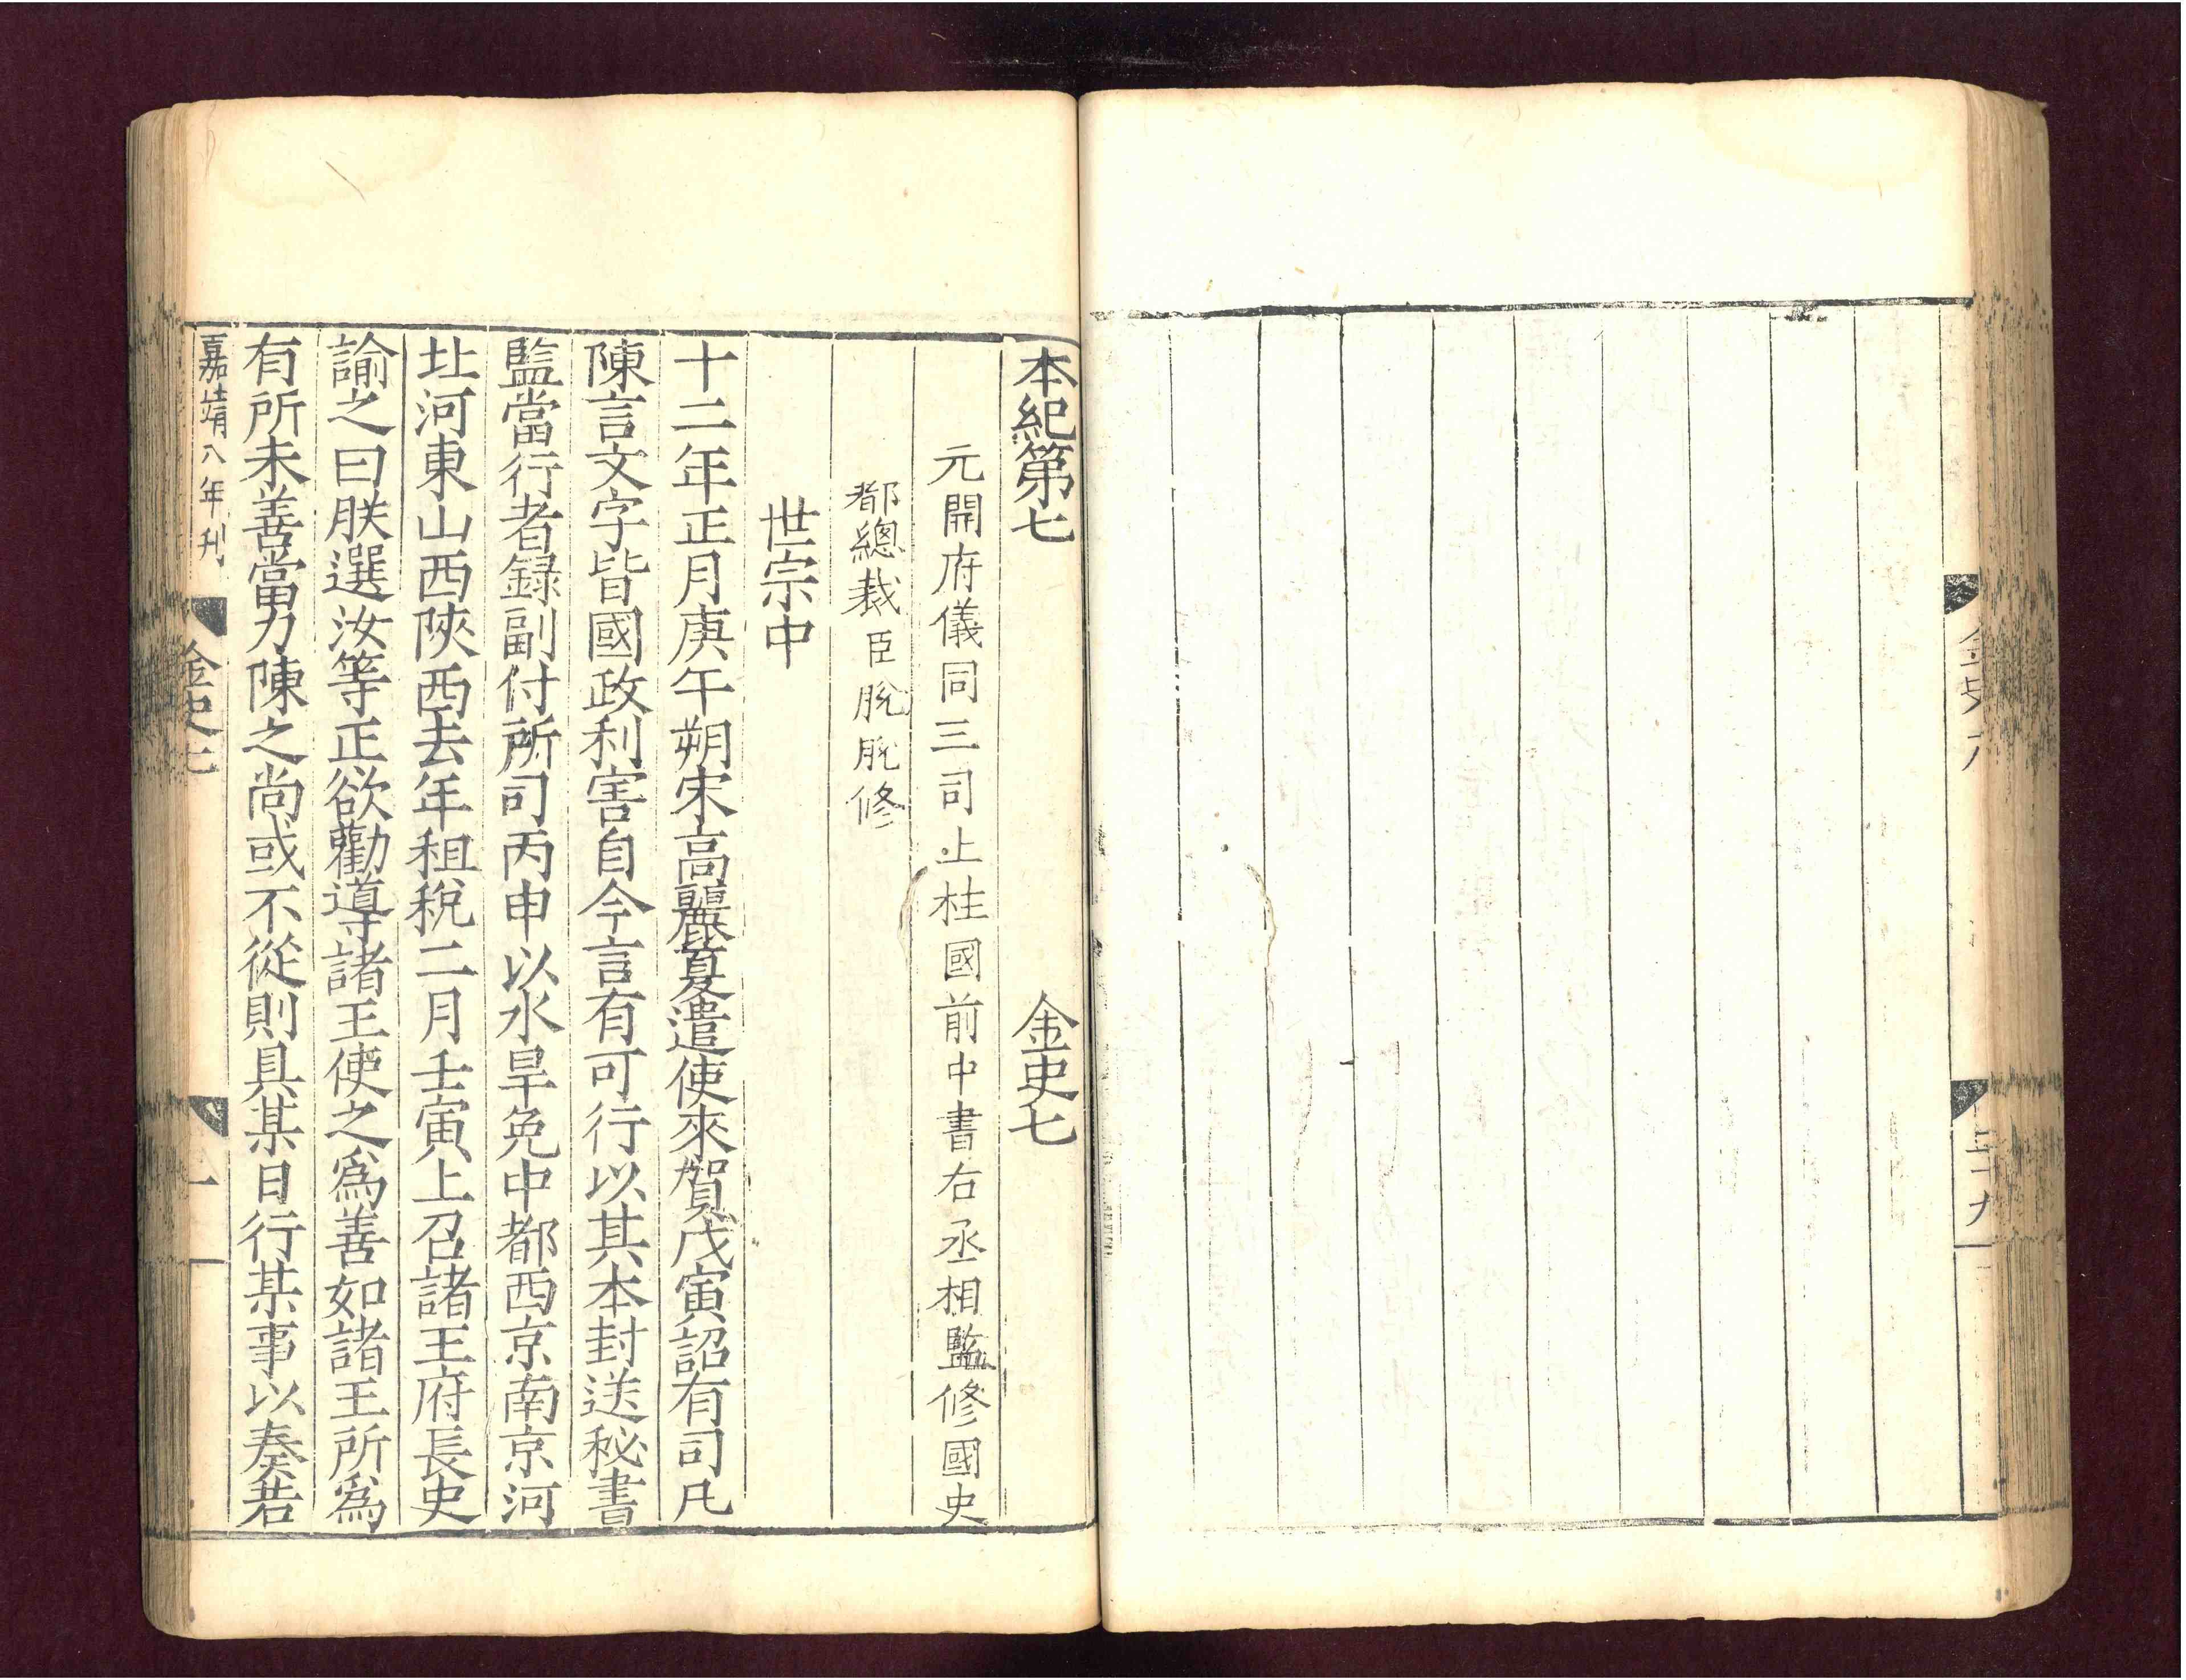 本紀第七 金史七
元開府儀同三司上柱國前中書右丞相監修國史
都總裁臣脫脫修
世宗中
十二年正月庚午朔宋高麗夏遣使來賀戊寅詔有司凡
陳言文字皆國政利害自今言有可行以其本封送秘書
監當行者録副付所司丙申以水旱免中都西京南京河
北河東山西陝西去年租稅二月壬寅上召諸王府長史
諭之曰朕選汝等正欲勸導諸王使之為善如諸王所為
有所未善當力陳之尚或不從則具某日行某事以奏若
嘉靖八年刊
金史七
一